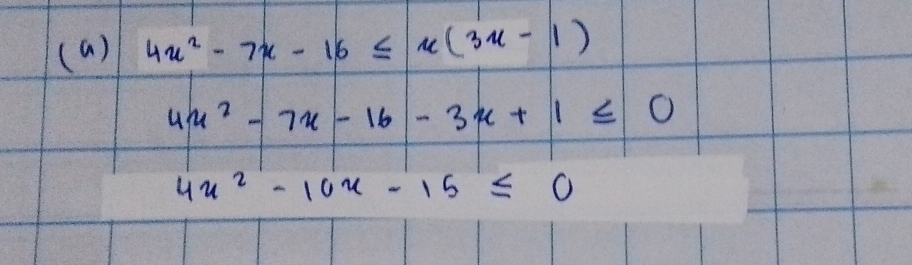 (a) 4x² - 7x - 16 ≤ x(3x - 1)
4x² - 7x - 16 - 3x + 1 ≤ 0
4x² - 10x - 15 ≤ 0